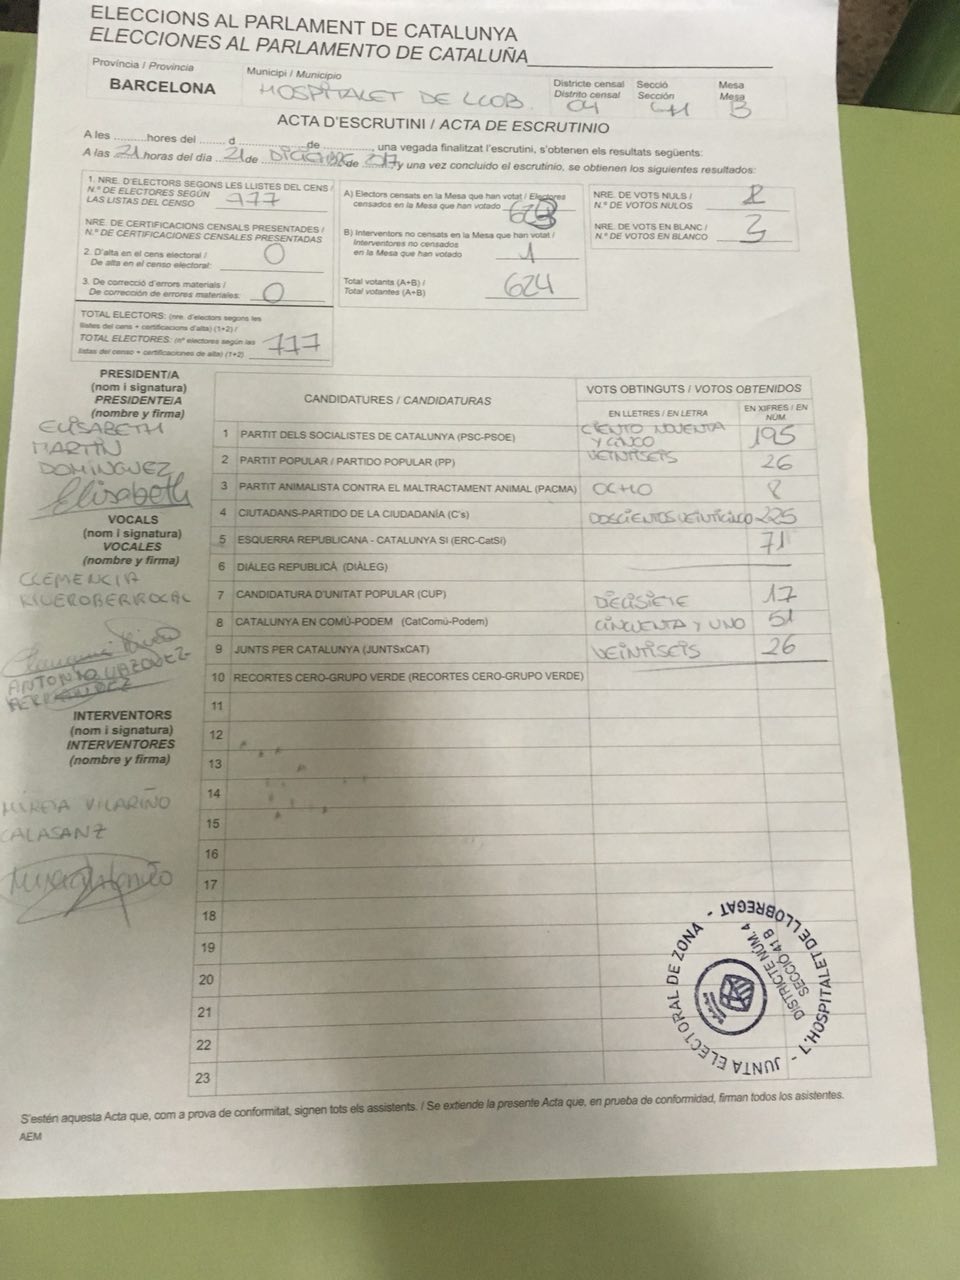 ELECCIONS AL PARLAMENT DE CATALUNYA
ELECCIONES AL PARLAMENTO DE CATALUÑA
Província / Provincia
BARCELONA
Municipi / Municipio
HOSPITALET DE LLOB.
Districte censal
Distrito censal
04
Secció
Sección
41
Mesa
Mesa
B
ACTA D'ESCRUTINI / ACTA DE ESCRUTINIO
A les ..........hores del ....... d...............de..............., una vegada finalitzat l'escrutini, s'obtenen els resultats següents:
A las 21 horas del día 21 de DICIEMBRE de 2017 y una vez concluido el escrutinio, se obtienen los siguientes resultados:
1. NRE. D'ELECTORS SEGONS LES LLISTES DEL CENS /
N.º DE ELECTORES SEGÚN
LAS LISTAS DEL CENSO 777
NRE. DE CERTIFICACIONS CENSALS PRESENTADES /
N.º DE CERTIFICACIONES CENSALES PRESENTADAS
2. D'alta en el cens electoral /
De alta en el censo electoral: 0
3. De correcció d'errors materials /
De corrección de errores materiales: 0
TOTAL ELECTORS: (nre. d'electors segons les
llistes del cens + certificacions d'alta) (1+2) /
TOTAL ELECTORES: (nº electores según las
listas del censo + certificaciones de alta) (1+2) 777
A) Electors censats en la Mesa que han votat / Electores
censados en la Mesa que han votado 623
B) Interventors no censats en la Mesa que han votat /
Interventores no censados
en la Mesa que han votado 1
Total votants (A+B) /
Total votantes (A+B) 624
NRE. DE VOTS NULS /
N.º DE VOTOS NULOS 2
NRE. DE VOTS EN BLANC /
N.º DE VOTOS EN BLANCO 3
PRESIDENT/A
(nom i signatura)
PRESIDENTE/A
(nombre y firma)
ELISABETH
MARTIN
DOMINGUEZ
Elisabeth
VOCALS
(nom i signatura)
VOCALES
(nombre y firma)
CLEMENCIA
RIVERO BERROCAL
ANTONIO VAZQUEZ
INTERVENTORS
(nom i signatura)
INTERVENTORES
(nombre y firma)
MIREIA VILARIÑO
CALASANZ
CANDIDATURES / CANDIDATURAS
VOTS OBTINGUTS / VOTOS OBTENIDOS
EN LLETRES / EN LETRA
EN XIFRES / EN NÚM.
1 PARTIT DELS SOCIALISTES DE CATALUNYA (PSC-PSOE) CIENTO NOVENTA Y CINCO 195
2 PARTIT POPULAR / PARTIDO POPULAR (PP) VEINTISEIS 26
3 PARTIT ANIMALISTA CONTRA EL MALTRACTAMENT ANIMAL (PACMA) OCHO 8
4 CIUTADANS-PARTIDO DE LA CIUDADANÍA (C's) DOSCIENTOS VEINTICINCO 225
5 ESQUERRA REPUBLICANA - CATALUNYA SI (ERC-CatSí) 71
6 DIÀLEG REPUBLICÀ (DIÀLEG)
7 CANDIDATURA D'UNITAT POPULAR (CUP) DIECISIETE 17
8 CATALUNYA EN COMÚ-PODEM (CatComú-Podem) CINCUENTA Y UNO 51
9 JUNTS PER CATALUNYA (JUNTSxCAT) VEINTISEIS 26
10 RECORTES CERO-GRUPO VERDE (RECORTES CERO-GRUPO VERDE)
11
12
13
14
15
16
17
18
19
20
21
22
23
JUNTA ELECTORAL DE ZONA - L'HOSPITALET DE LLOBREGAT -
DISTRICTE NÚM. 4
SECCIÓ 41 B
S'estén aquesta Acta que, com a prova de conformitat, signen tots els assistents. / Se extiende la presente Acta que, en prueba de conformidad, firman todos los asistentes.
AEM